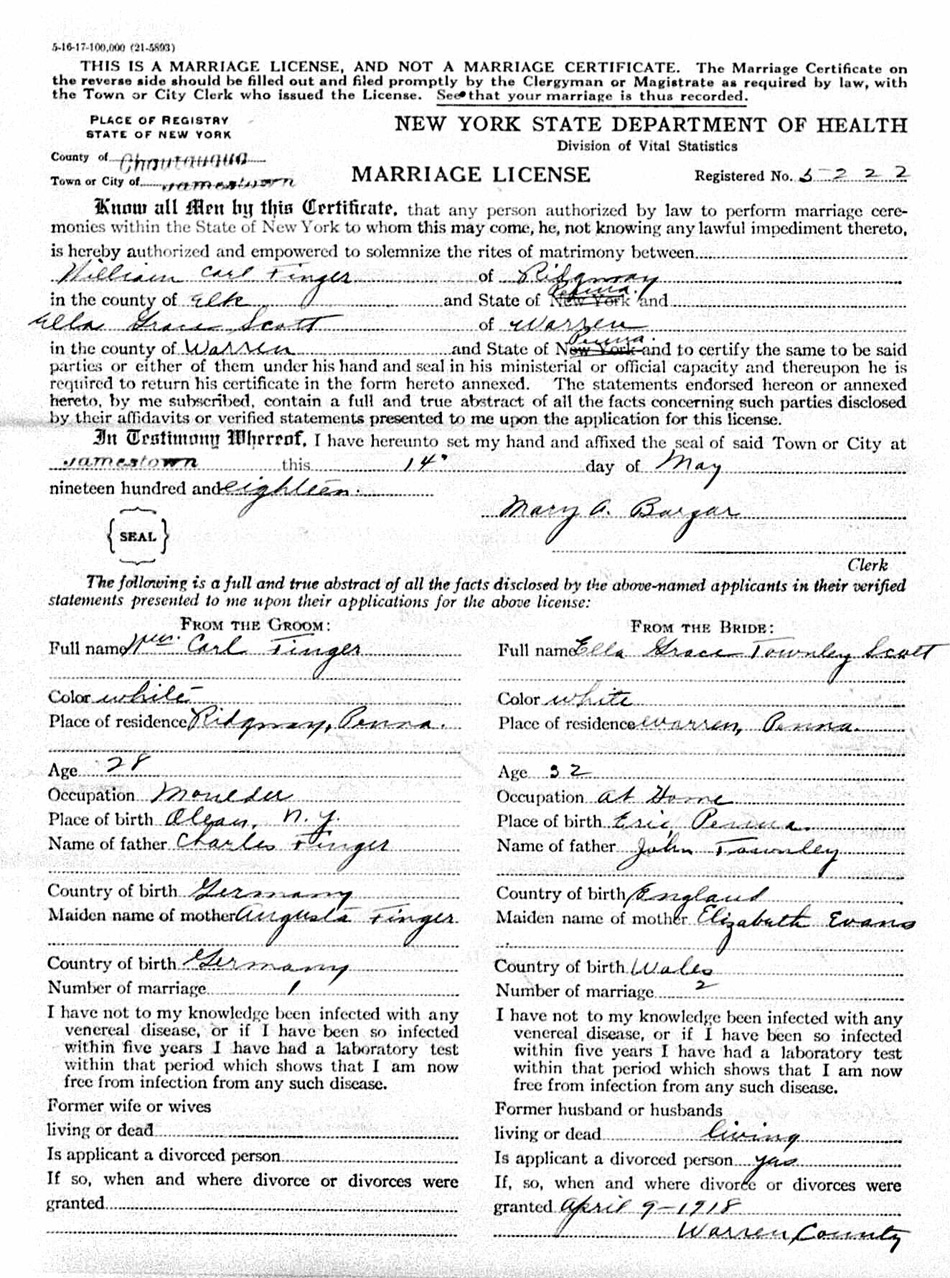 5-16-17-100,000 (21-5893)
THIS IS A MARRIAGE LICENSE, AND NOT A MARRIAGE CERTIFICATE. The Marriage Certificate on
the reverse side should be filled out and filed promptly by the Clergyman or Magistrate as required by law, with
the Town or City Clerk who issued the License. See that your marriage is thus recorded.
PLACE OF REGISTRY
STATE OF NEW YORK
NEW YORK STATE DEPARTMENT OF HEALTH
Division of Vital Statistics
County of Chautauqua
Town or City of Jamestown
MARRIAGE LICENSE
Registered No. 5222
Know all Men by this Certificate, that any person authorized by law to perform marriage cere-
monies within the State of New York to whom this may come, he, not knowing any lawful impediment thereto,
is hereby authorized and empowered to solemnize the rites of matrimony between
William Carl Finger of Ridgway
in the county of Elk and State of New York Penna. and
Ella Grace Scott of Warren
in the county of Warren and State of New York Penna. and to certify the same to be said
parties or either of them under his hand and seal in his ministerial or official capacity and thereupon he is
required to return his certificate in the form hereto annexed. The statements endorsed hereon or annexed
hereto, by me subscribed, contain a full and true abstract of all the facts concerning such parties disclosed
by their affidavits or verified statements presented to me upon the application for this license.
In Testimony Whereof, I have hereunto set my hand and affixed the seal of said Town or City at
Jamestown this 14" day of May
nineteen hundred and eighteen.
Mary A. Bargar
SEAL
Clerk
The following is a full and true abstract of all the facts disclosed by the above-named applicants in their verified
statements presented to me upon their applications for the above license:
FROM THE GROOM:
Full name Wm. Carl Finger
Color white
Place of residence Ridgway, Penna.
Age 28
Occupation Moulder
Place of birth Olean, N.Y.
Name of father Charles Finger
Country of birth Germany
Maiden name of mother Augusta Finger
Country of birth Germany
Number of marriage 1
I have not to my knowledge been infected with any
venereal disease, or if I have been so infected
within five years I have had a laboratory test
within that period which shows that I am now
free from infection from any such disease.
Former wife or wives
living or dead
Is applicant a divorced person
If so, when and where divorce or divorces were
granted
FROM THE BRIDE:
Full name Ella Grace Townley Scott
Color white
Place of residence Warren, Penna.
Age 32
Occupation at Home
Place of birth Erie Penna.
Name of father John Townley
Country of birth England
Maiden name of mother Elizabeth Evans
Country of birth Wales
Number of marriage 2
I have not to my knowledge been infected with any
venereal disease, or if I have been so infected
within five years I have had a laboratory test
within that period which shows that I am now
free from infection from any such disease.
Former husband or husbands
living or dead living
Is applicant a divorced person yes
If, so, when and where divorce or divorces were
granted April 9-1918
Warren County